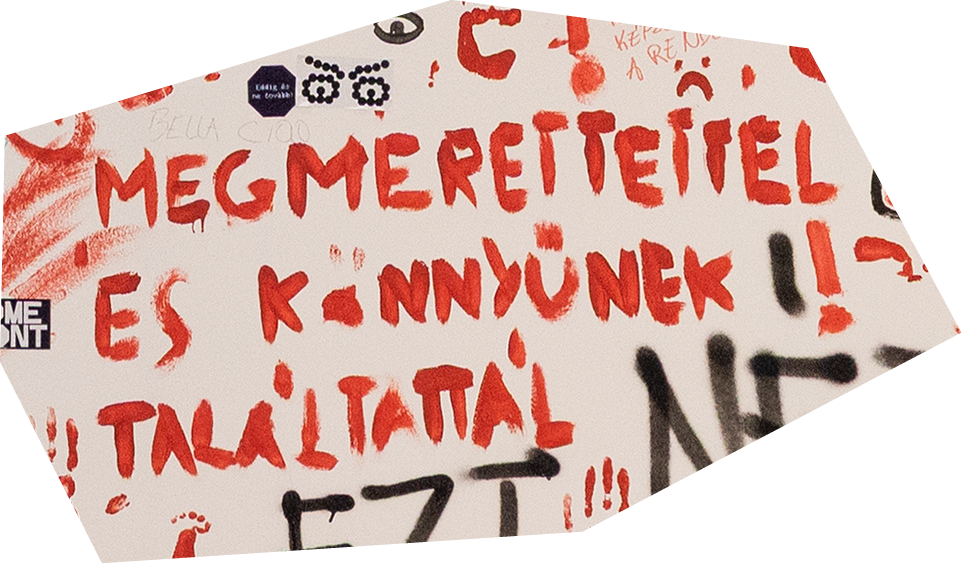 C !
A REND
Eddig és
ne tovább!
BELLA CIAO
MEGMERETTETTEL
ES KÖNNYŰNEK !!
TALÁLTATTÁL
NE
EZT !!!